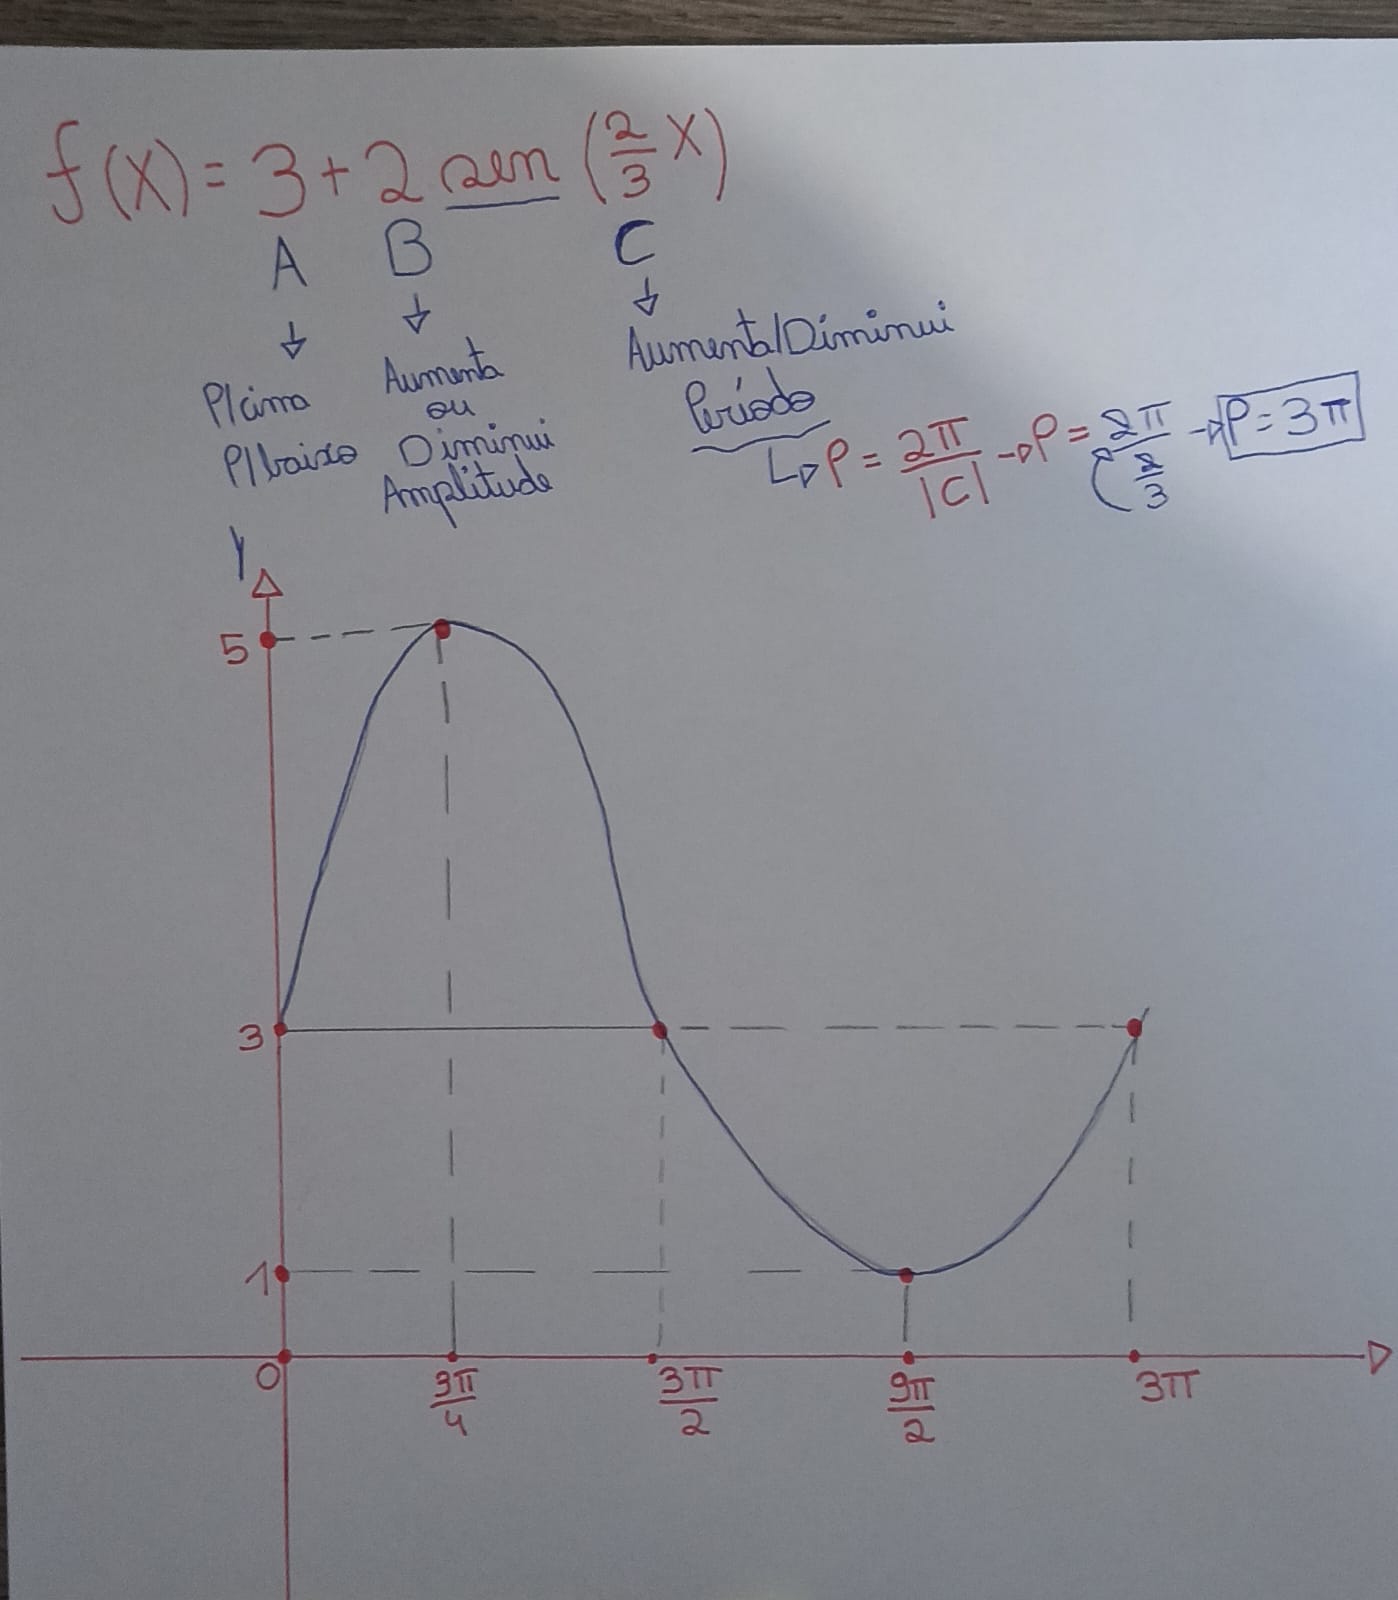 f(x) = 3 + 2 sen (2/3 x)
A B C
P/cima
P/baixo
Aumenta
ou
Diminui
Amplitude
Aumenta/Diminui
Período
P = 2π/|C| → P = 2π/(2/3) → P = 3π
Y
5
3
1
0 3π/4 3π/2 9π/2 3π